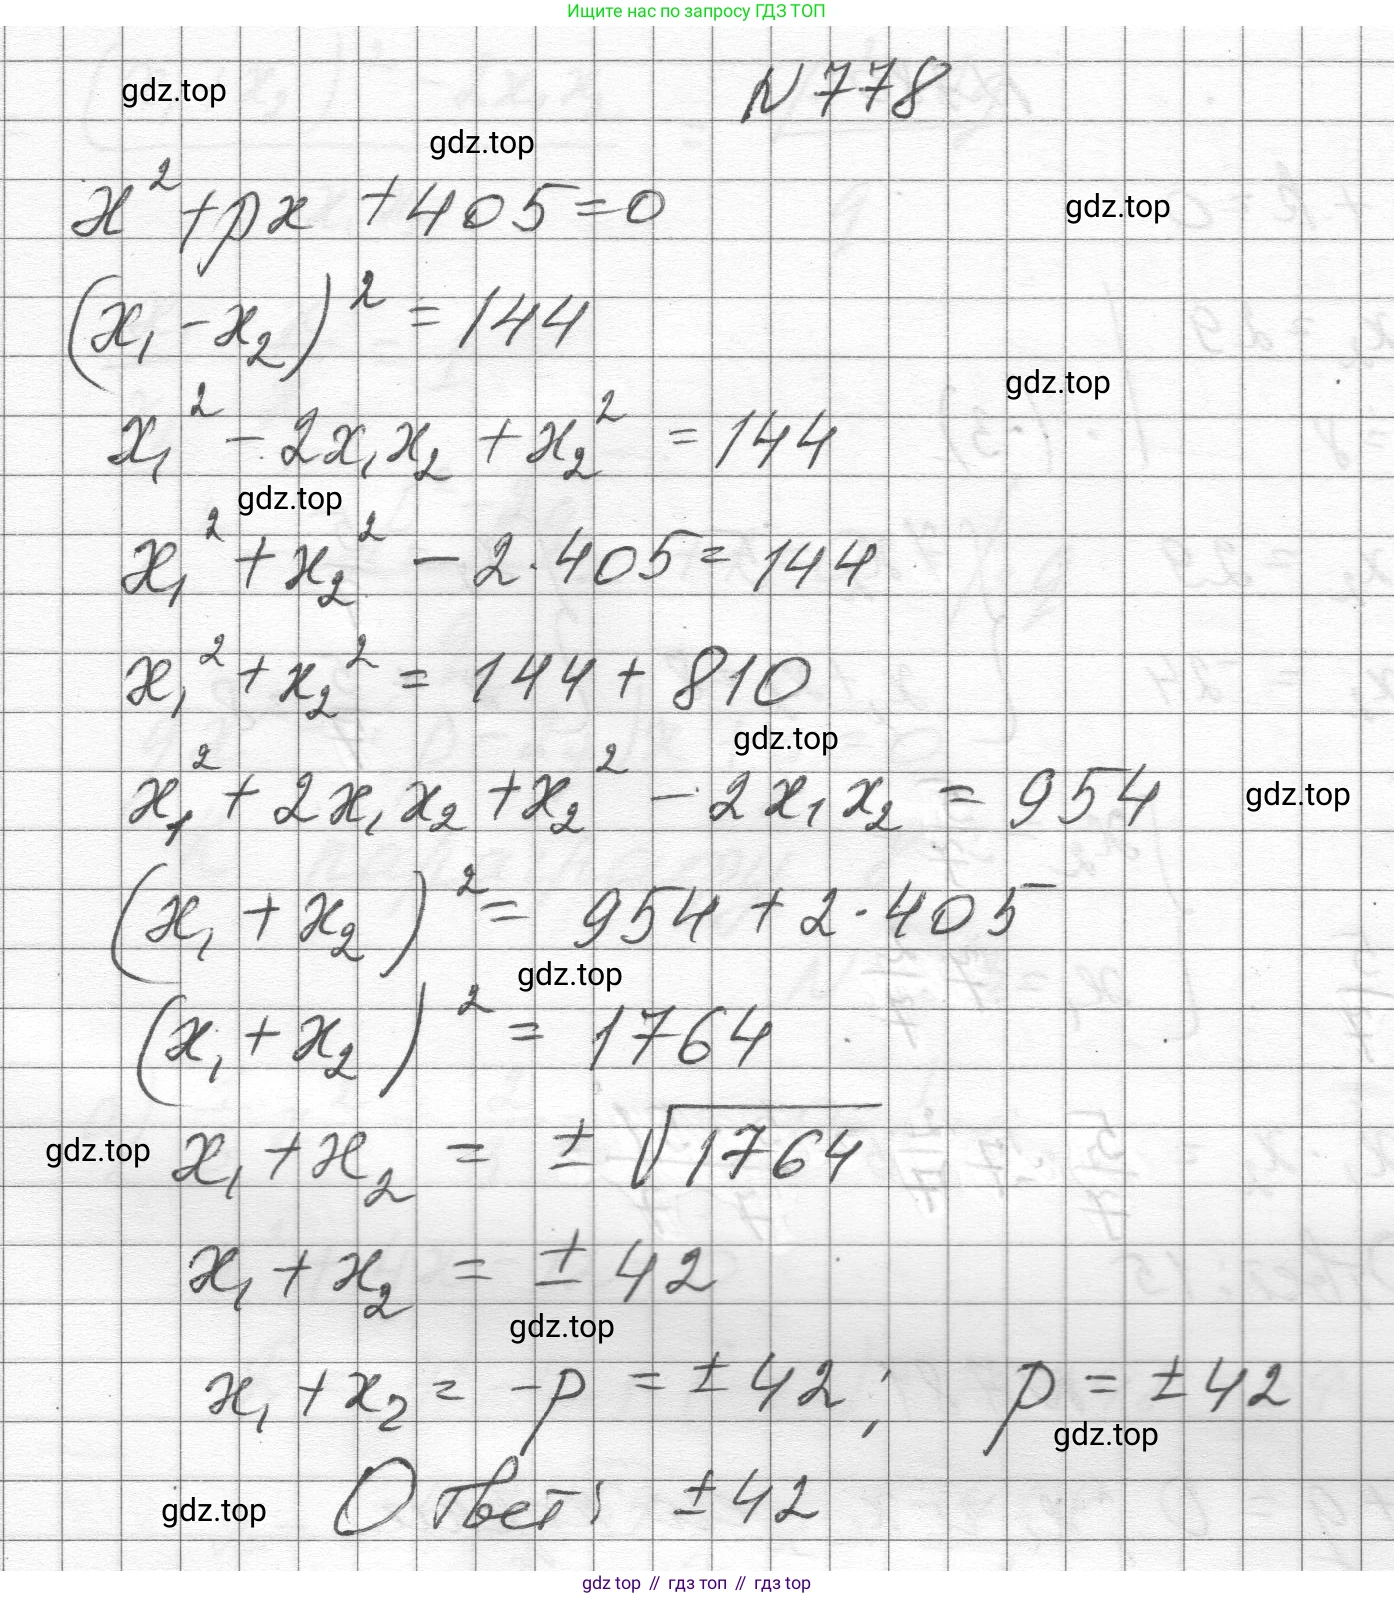 Ищите нас по запросу ГДЗ ТОП
gdz.top
N 778
gdz.top
x² + px + 405 = 0
gdz.top
(x₁ - x₂)² = 144
gdz.top
x₁² - 2x₁x₂ + x₂² = 144
gdz.top
x₁² + x₂² - 2·405 = 144
x₁² + x₂² = 144 + 810
gdz.top
x₁² + 2x₁x₂ + x₂² - 2x₁x₂ = 954
gdz.top
(x₁ + x₂)² = 954 + 2·405
gdz.top
(x₁ + x₂)² = 1764
gdz.top
x₁ + x₂ = ± √1764
x₁ + x₂ = ± 42
gdz.top
x₁ + x₂ = -p = ± 42; p = ± 42
gdz.top
gdz.top
Ответ: ± 42
gdz top // гдз топ // гдз top